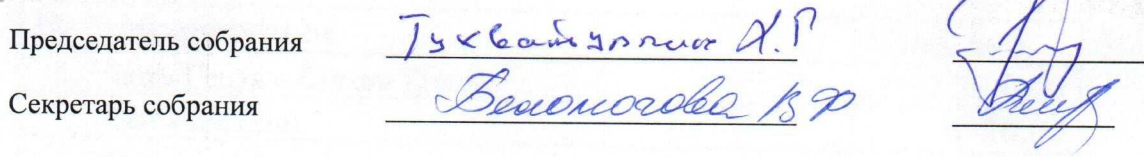 Председатель собрания Тухватуллин Х.Г
Секретарь собрания Белоногова В Ф